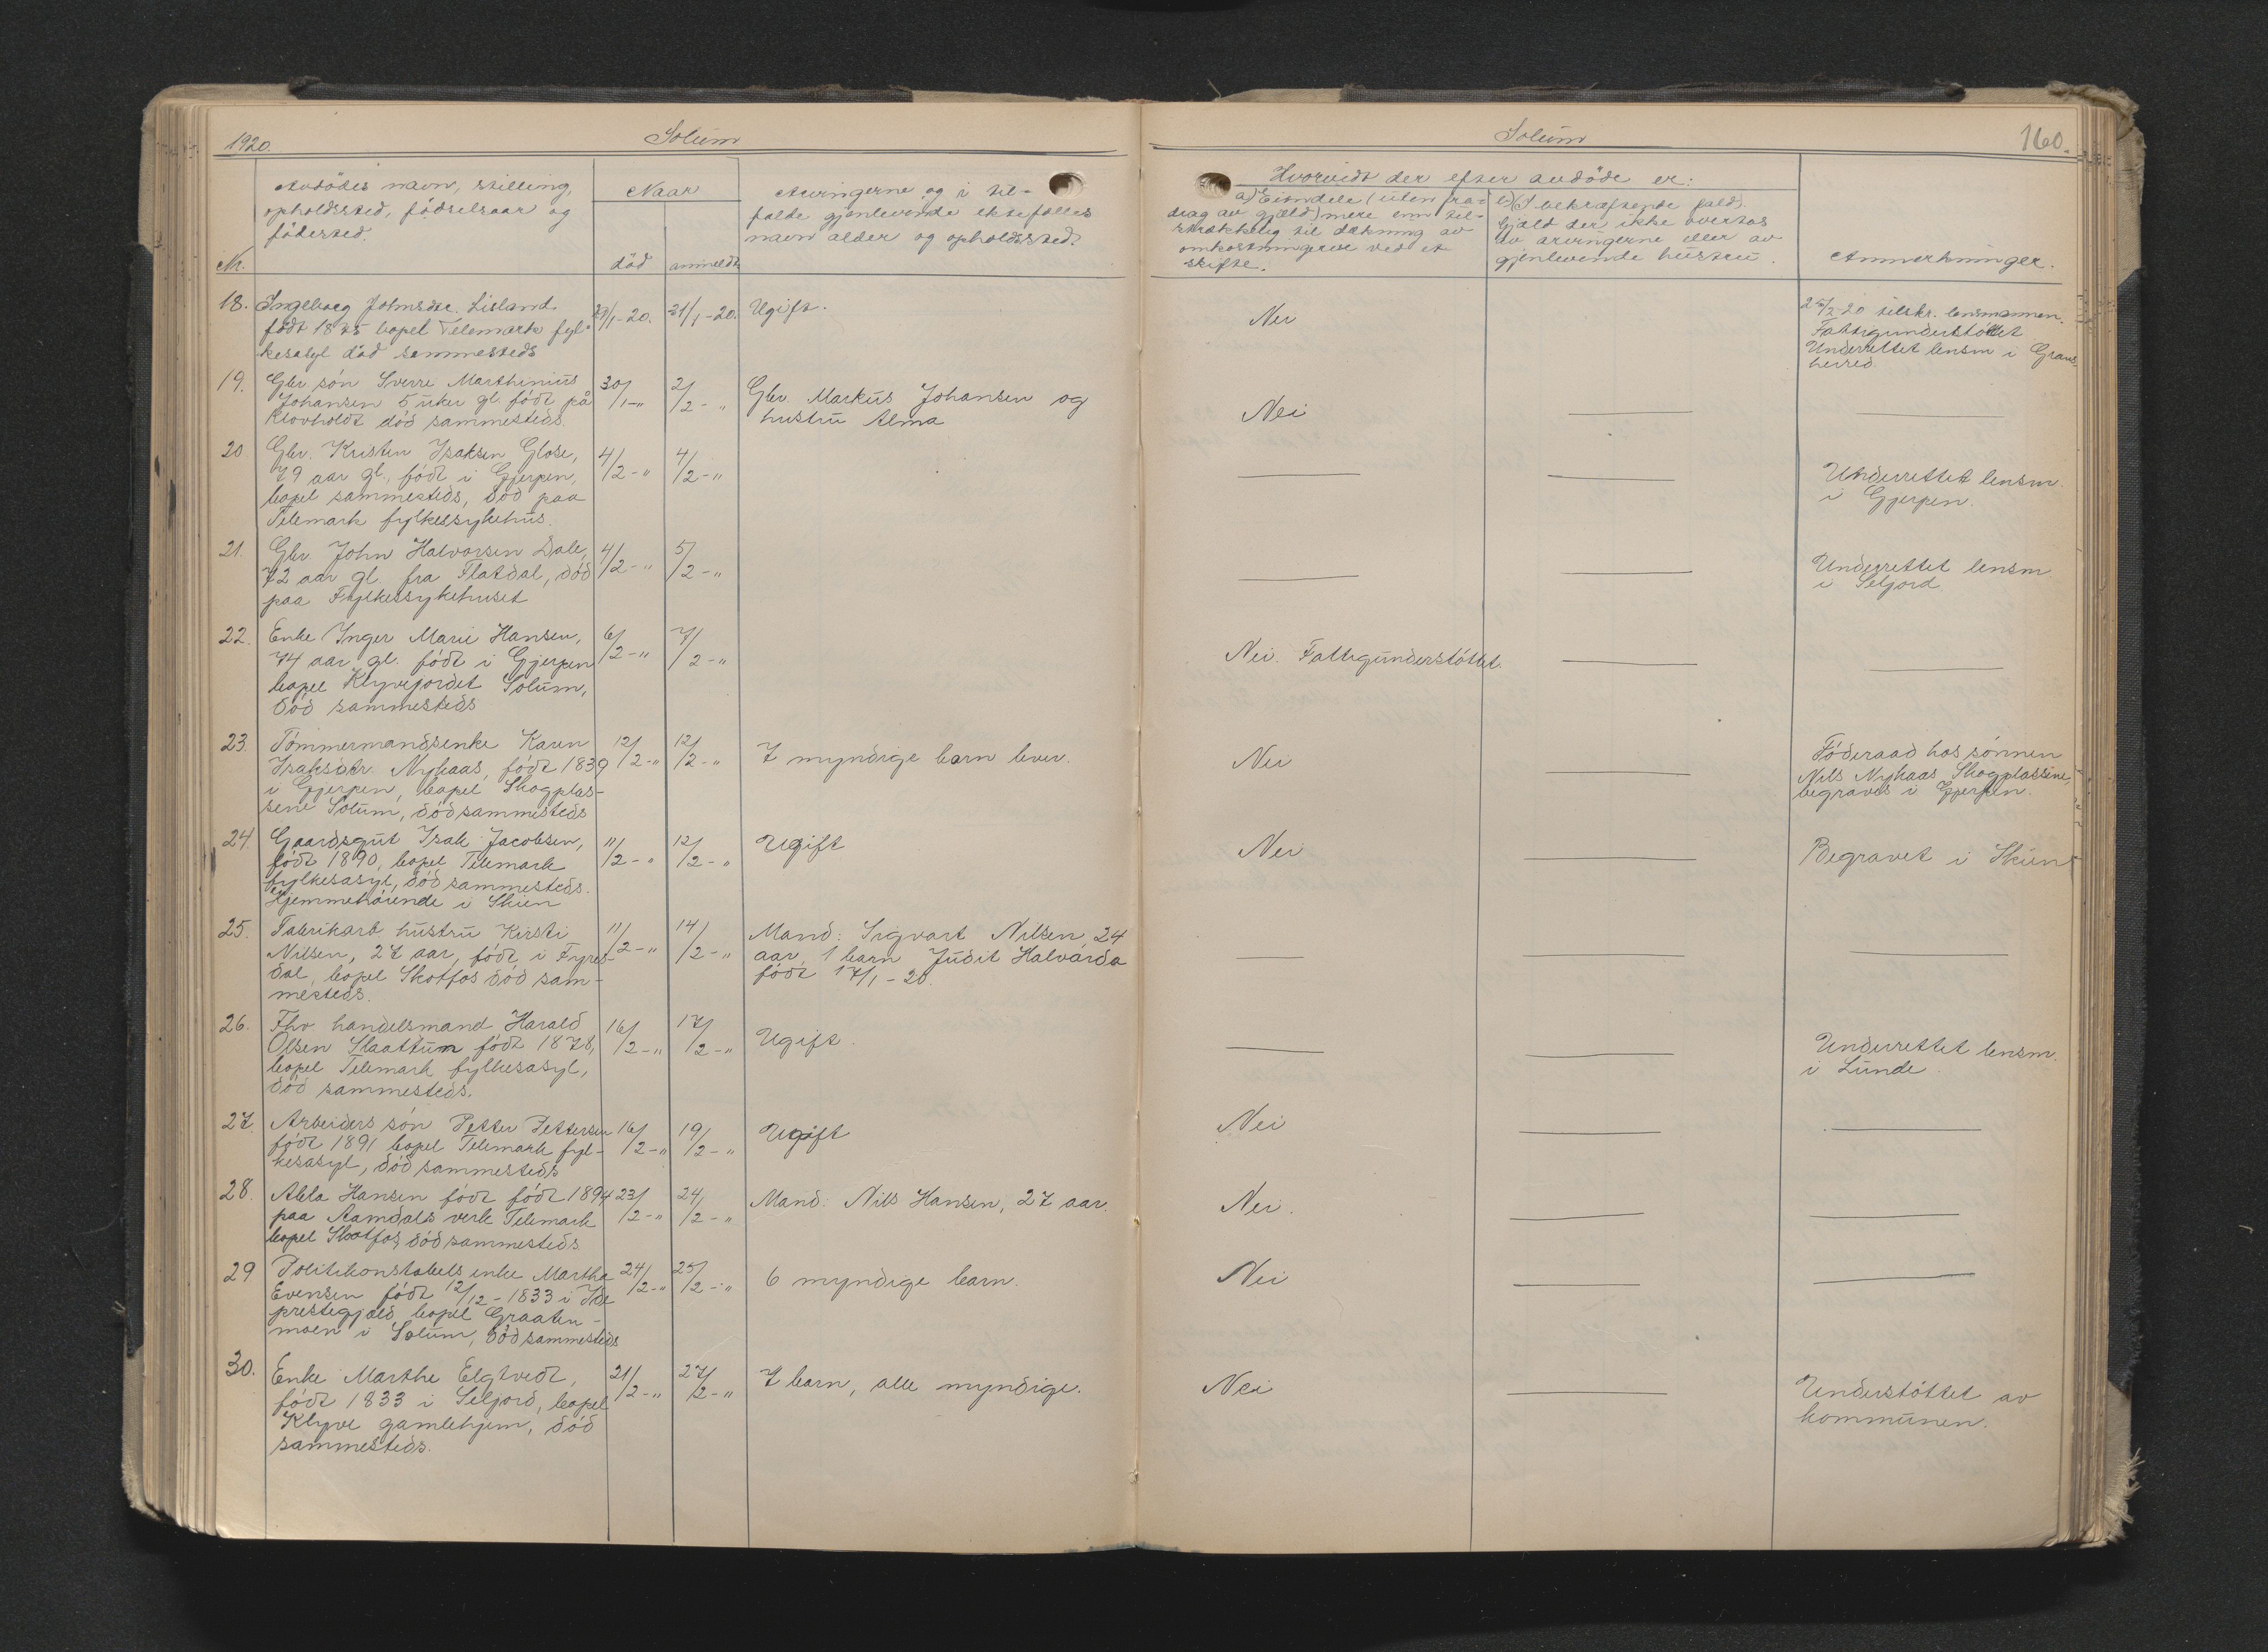 1920.
Solum
Solum
160.
Nr.
Avdødes navn, stilling,
opholdssted, fødselsaar og
fødested.
Naar
død
anmeldt
Arvingerne og i til-
fælde gjenlevende ektefælles
navn alder og opholdssted.
Hvorvidt der efter avdøde er:
a) Eiendele (uten fra-
drag av gjæld) mere enn til-
strækkelig til dækning av
omkostningerne ved et
skifte.
b) (I bekræftende fald).
Gjæld der ikke overtas
av arvingerne eller av
gjenlevende hustru.
Anmerkninger.
18.
Ingeborg Johnsdtr. Lisland
født 1845 bopel Telemark fyl-
kesasyl død sammesteds
29/1-20.
31/1-20.
Ugift.
Nei
25/2 20 tilskr. lensmannen.
Fattigunderstøttet
Underrettet lensm i Grans-
herred.
19.
Gbr søn Sverre Marthinius
Johansen 5 uker gl. født på
Klovholdt død sammesteds.
30/1-"
2/2-"
Gbr Markus Johansen og
hustru Alma
Nei
20
Gbr. Kristen Isaksen Glose,
79 aar gl., født i Gjerpen,
bopel sammesteds, død paa
Telemark fylkessykehus.
4/2-"
4/2-"
Underrettet lensm.
i Gjerpen.
21.
Gbr John Halvorsen Dale,
72 aar gl. fra Flatdal, død
paa Fylkessykehuset
4/2-"
5/2-"
Underrettet lensm
i Seljord
22.
Enke Inger Marie Hansen,
74 aar gl. født i Gjerpen
bopel Klyvejordet Solum,
død sammesteds
6/2-"
7/2-"
Nei. Fattigunderstøttet.
23.
Tømmermandsenke Karen
Isaksdtr. Nyhaas, født 1839
i Gjerpen, bopel Skogplas-
sene Solum, død sammesteds
12/2-"
12/2-"
7 myndige barn lever.
Nei
Føderaad hos sønnen
Nils Nyhaas Skogplassene,
begraves i Gjerpen.
24.
Gaardsgut Isak Jacobsen,
født 1890, bopel Telemark
fylkesasyl, død sammesteds.
Hjemmehørende i Skien
11/2-"
12/2-"
Ugift
Nei
Begravet i Skien
25.
Fabrikarb. hustru Kirsti
Nilsen, 27 aar, født i Fyres-
dal, bopel Skotfos død sam-
mesteds.
11/2-"
14/2-"
Mand: Sigvart Nilsen, 24
aar, 1 barn Judit Halvarda
født 17/1-20.
26.
Fhv. handelsmand Harald
Olsen Slaattum født 1878,
bopel Telemark fylkesasyl,
død sammesteds.
16/2-"
17/2-"
Ugift.
Underrettet lensm.
i Lunde.
27.
Arbeiders søn Petter Pettersen
født 1891 bopel Telemark fyl-
kesasyl, død sammesteds
16/2-"
19/2-"
Ugift
Nei
28.
Abla Hansen født født 1894
paa Aamdals verk Telemark
bopel Skotfos, død sammesteds
23/2-"
24/2-"
Mand: Nils Hansen, 27 aar.
Nei.
29
Politikonstabels enke Marthe
Evensen født 12/12-1833 i Ide
prestegjæld, bopel Graaten-
moen i Solum, død sammesteds
24/2-"
25/2-"
6 myndige barn.
Nei
30.
Enke Marthe Elgtvedt,
født 1833 i Seljord, bopel
Klyve gamlehjem, død
sammesteds.
21/2-"
27/2-"
7 barn, alle myndige.
Nei
Understøttet av
kommunen.